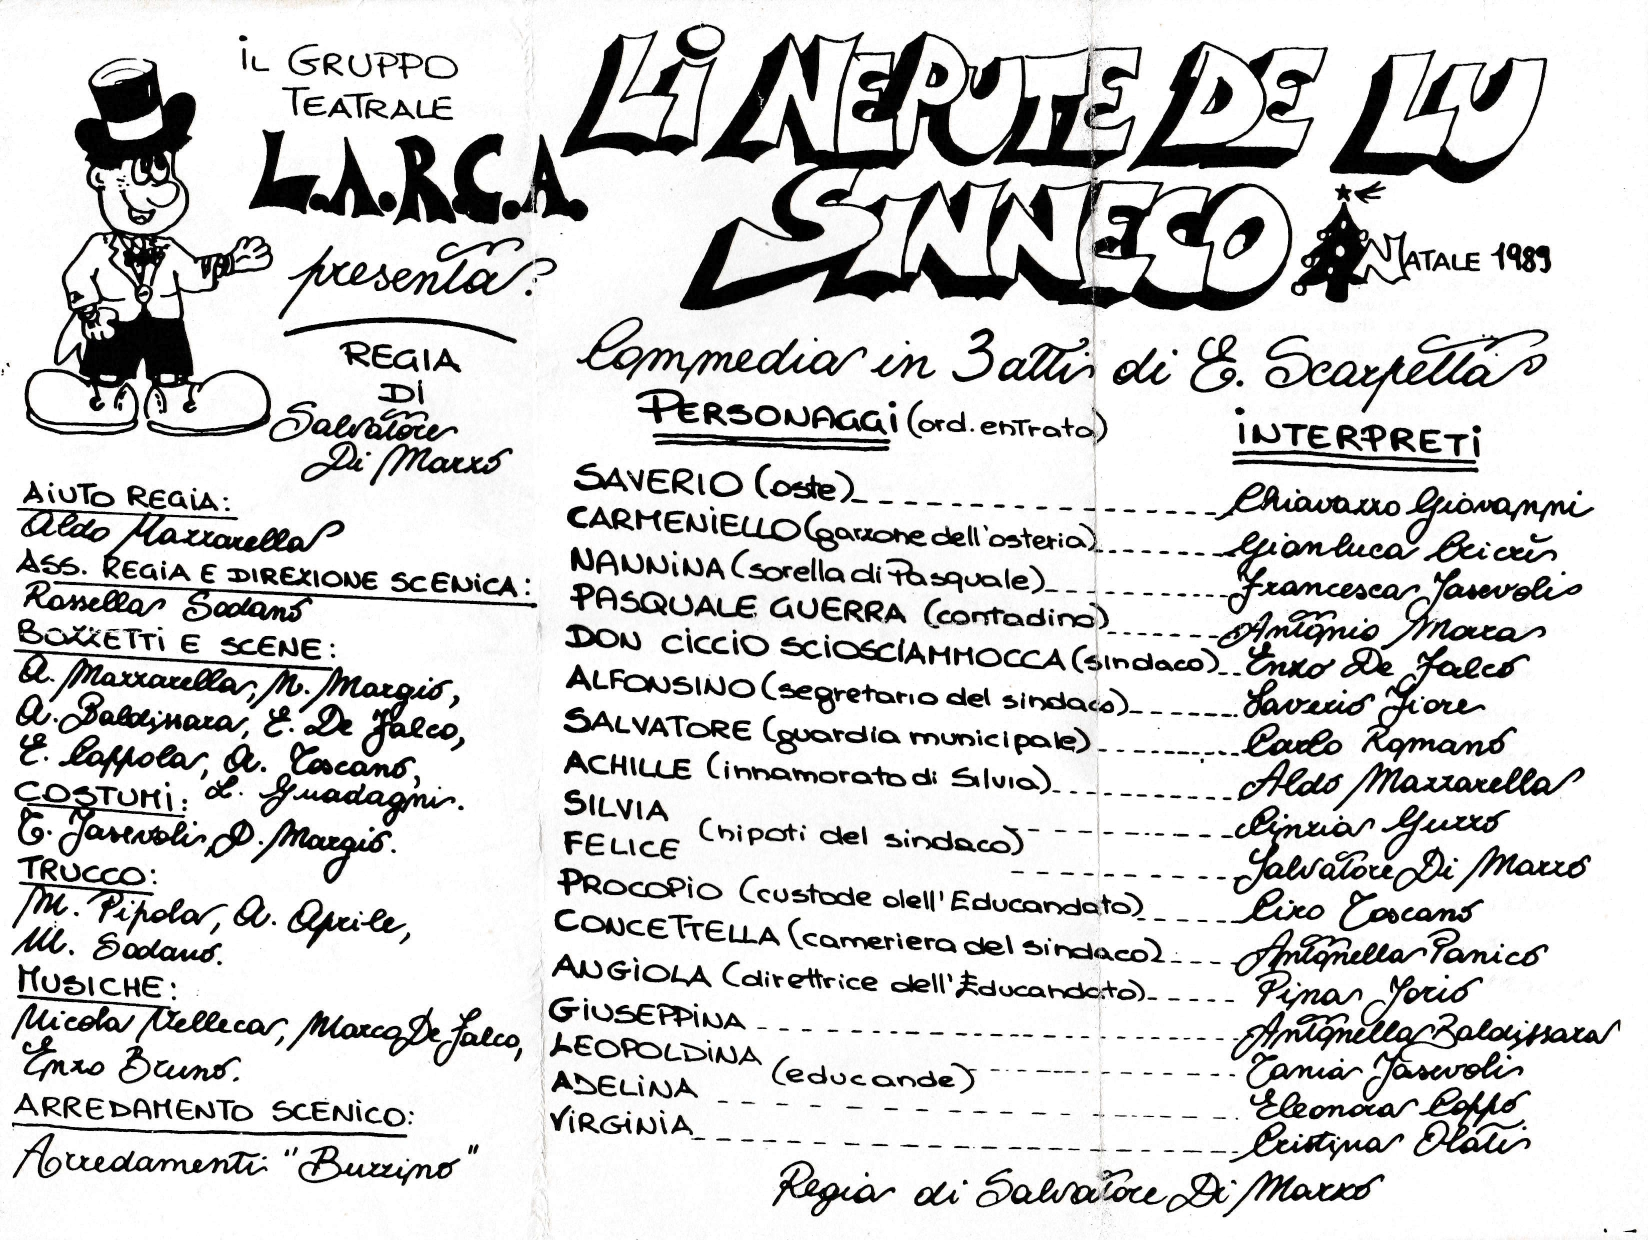 iL GRUPPO
TEATRALE
L.A.R.C.A.
presenta:
REGIA
Di
Salvatore
Di Marzo
AiUTO REGIA:
Aldo Mazzarella
ASS. REGIA E DIREZIONE SCENiCA:
Rossella Sodano
BOZZETTI E SCENE:
A. Mazzarella, M. Margio,
A. Baldissara, E. De Falco,
E. Coppola, A. Toscano,
L. Guadagni.
COSTUMi:
T. Iasevoli, D. Margio.
TRUCCO:
M. Pipola, A. Aprile,
M. Sodano.
MUSICHE:
Nicola Velleca, Marco De Falco,
Enzo Bruno.
ARREDAMENTO SCENICO:
Arredamenti "Buzzino"
Li NEPUTE DE LU
SINNECO
NATALE 1989
Commedia in 3 atti di E. Scarpetta
PERSONAGGi (ord. entrata) iNTERPRETi
SAVERIO (oste) Chiavazzo Giovanni
CARMENiELLO (garzone dell'osteria) Gianluca Cricrì
NANNiNA (sorella di Pasquale) Francesca Iasevoli
PASQUALE GUERRA (contadino) Antonio Marra
DON CICCIO SCIOSCIAMMOCCA (sindaco) Enzo De Falco
ALFONSINO (segretario del sindaco) Saverio Fiore
SALVATORE (guardia municipale) Carlo Romano
ACHILLE (innamorato di Silvia) Aldo Mazzarella
SILVIA Cinzia Guzzo
(nipoti del sindaco)
FELICE Salvatore Di Marzo
PROCOPIO (custode dell'Educandato) Ciro Toscano
CONCETTELLA (cameriera del sindaco) Antonella Panico
ANGiOLA (direttrice dell'Educandato) Pina Iorio
GiUSEPPINA Antonella Baldissara
LEOPOLDINA Tania Iasevoli
(educande)
ADELiNA Eleonora Coppo
ViRGiNiA Cristina Olati
Regia di Salvatore Di Marzo